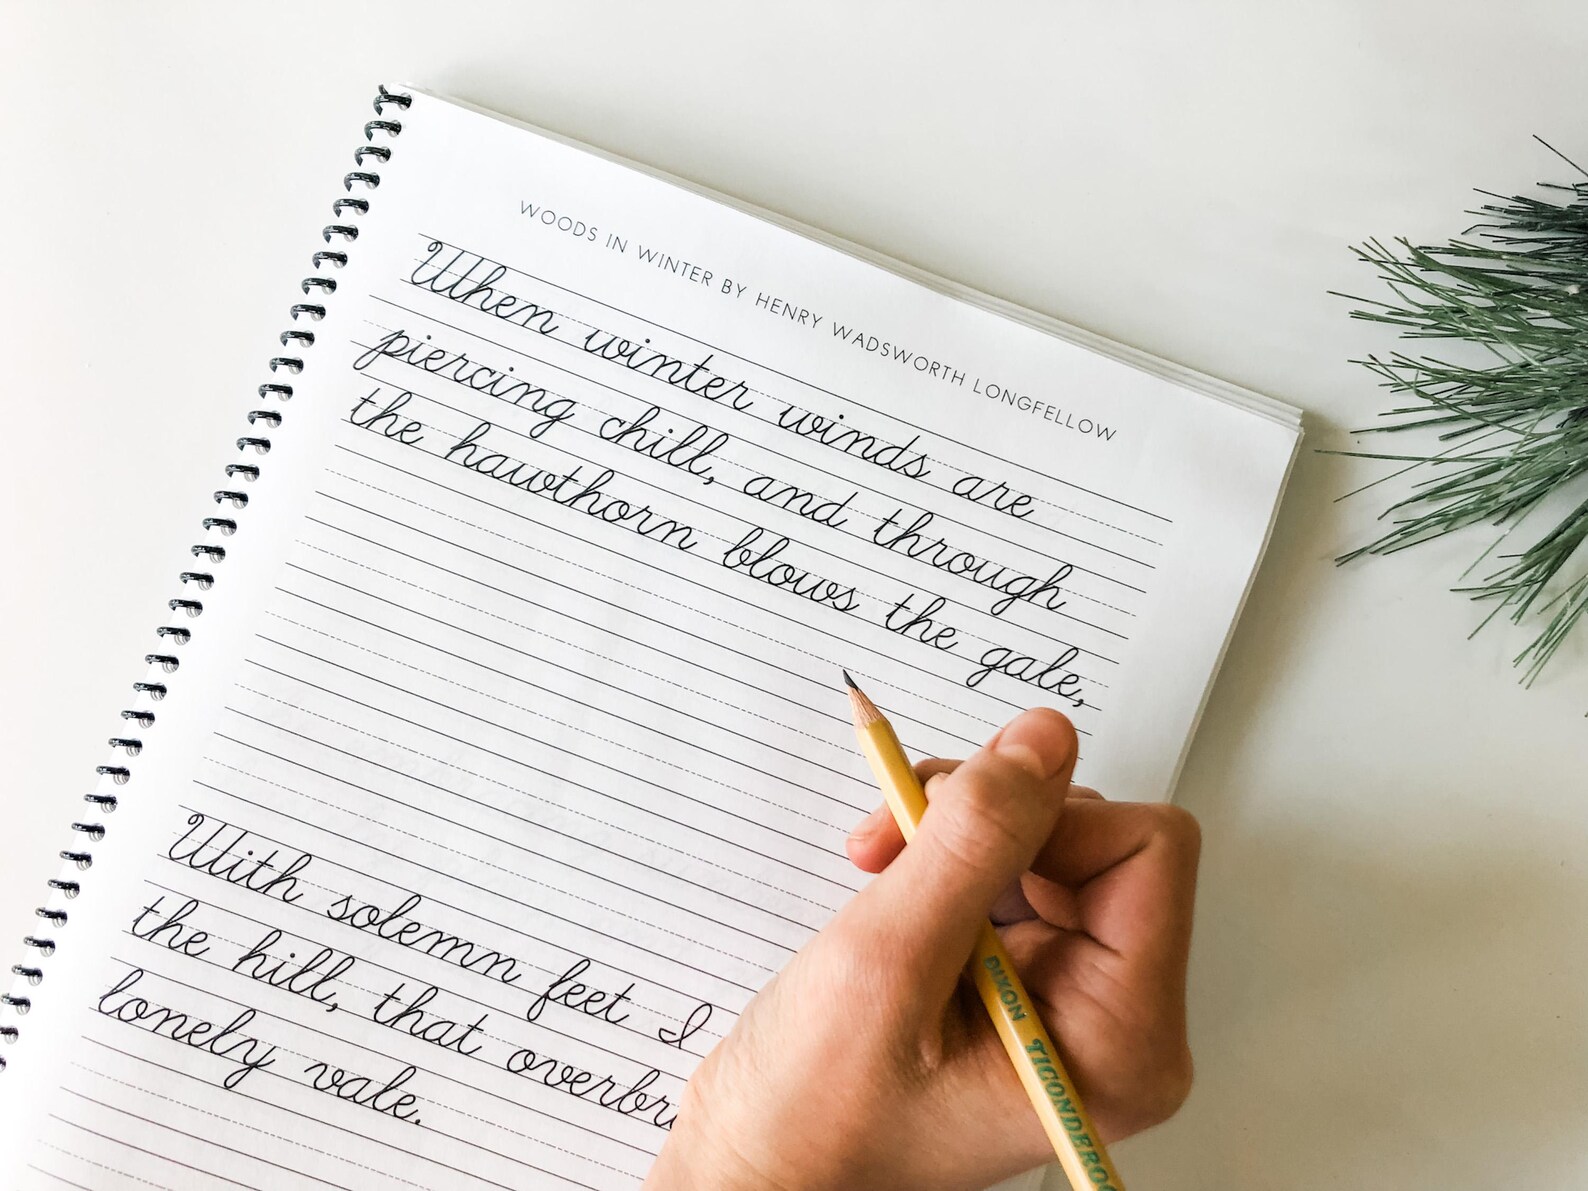 WOODS IN WINTER BY HENRY WADSWORTH LONGFELLOW
When winter winds are
piercing chill, and through
the hawthorn blows the gale,
With solemn feet I
the hill, that
lonely vale.
DIXON TICONDEROG